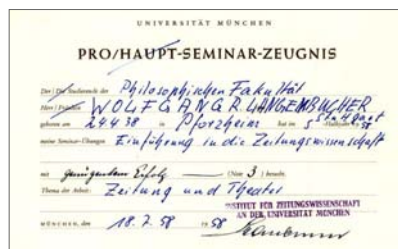 UNIVERSITÄT MÜNCHEN
PRO/HAUPT-SEMINAR-ZEUGNIS
Der / Die Studierende der Philosophischen Fakultät
Herr / Fräulein WOLFGANG R. LANGENBUCHER
geboren am 24.4.38 in Pforzheim hat im Halbjahr 58
meine Seminar-Übungen Einführung in die Zeitungswissenschaft
mit genügendem Erfolg (Note 3) besucht.
Thema der Arbeit: Zeitung und Theater
INSTITUT FÜR ZEITUNGSWISSENSCHAFT
AN DER UNIVERSITÄT MÜNCHEN
MÜNCHEN, den 18.7.58 1958